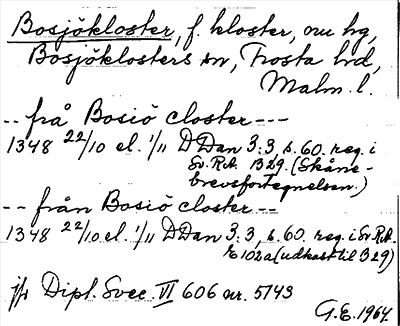 Bosjökloster, f. kloster, nu hg,
Bosjöklosters sn, Frosta hd,
Malm. l.
-- frå Bosiö closter ---
1348 22/10 el. 1/11 DDan 3:3 s. 60. reg. i
Sv. R.A. B29. (Skåne-
brevsförtegnelsen.)
-- från Bosiö closter --
1348 22/10 el. 1/11 DDan 3:3, s. 60. reg. i Sv. R.A.
E 102a (udkast til B29)
jfr Dipl. Svec. VI 606 nr. 5143
G.E. 1964.